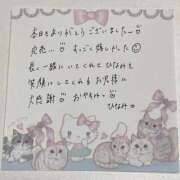 本日もありがとうございました
完売… すっごく嬉しかった
長く一緒にいてくれてひなみを
笑顔にしてくれるお兄様に
大感謝 おやすみ
ひなみ